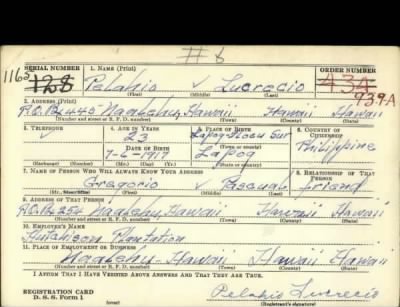 # 8
SERIAL NUMBER 1. NAME (Print) ORDER NUMBER
1165 128 Pelahio Lucrecio 434 939A
(First) (Middle) (Last)
2. ADDRESS (Print)
P.O. Bx 445 - Naalehu, Hawaii Hawaii Hawaii
(Number and street or R. F. D. number) (Town) (County) (State)
3. TELEPHONE 4. AGE IN YEARS 5. PLACE OF BIRTH 6. COUNTRY OF CITIZENSHIP
23 Philippine
DATE OF BIRTH
7-6-1917 Lapog
(Exchange) (Number) (Mo.) (Day) (Yr.) (State or country)
7. NAME OF PERSON WHO WILL ALWAYS KNOW YOUR ADDRESS 8. RELATIONSHIP OF THAT PERSON
Gregorio Pascual friend
(Mr., Mrs., Miss) (First) (Middle) (Last)
9. ADDRESS OF THAT PERSON
P.O. Bx 254 Naalehu, Hawaii Hawaii Hawaii
(Number and street or R. F. D. number) (Town) (County) (State)
10. EMPLOYER'S NAME
Hutchison Plantation
11. PLACE OF EMPLOYMENT OR BUSINESS
Naalehu - Hawaii Hawaii Hawaii
(Number and street or R. F. D. number) (Town) (County) (State)
I AFFIRM THAT I HAVE VERIFIED ABOVE ANSWERS AND THAT THEY ARE TRUE.
REGISTRATION CARD
D. S. S. Form 1
Pelahio Lucrecio
(Registrant's signature)